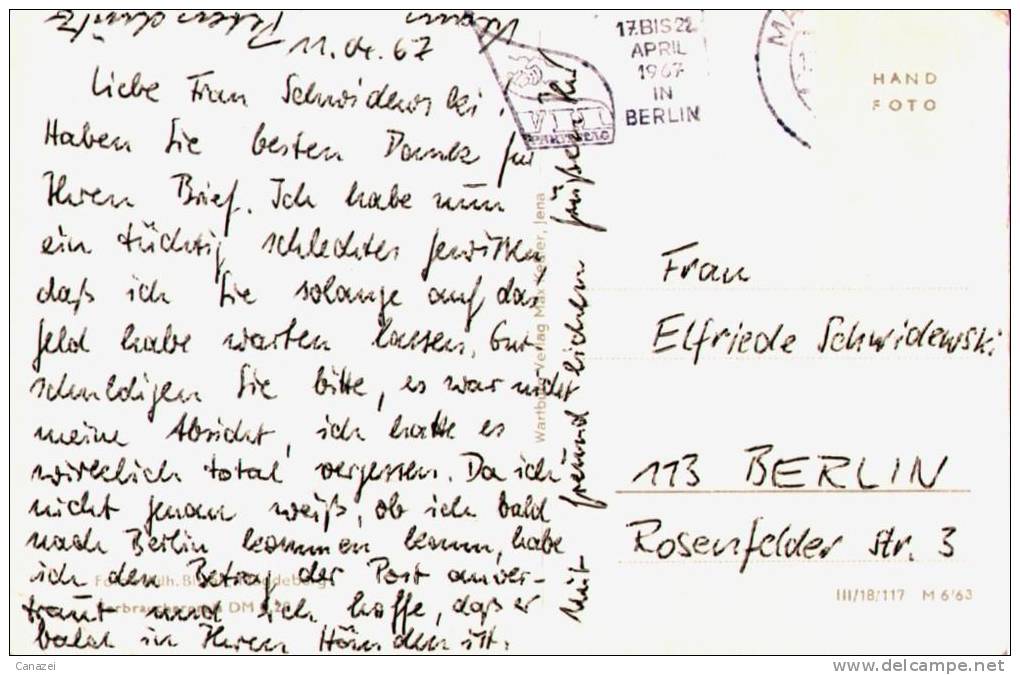 11.04.67
Liebe Frau Schwidewski!
Haben Sie besten Dank für
Ihren Brief. Ich habe nun
ein tüchtig schlechtes Gewissen,
daß ich Sie solange auf das
Geld habe warten lassen. Ent-
schuldigen Sie bitte, es war nicht
meine Absicht, ich hatte es
wirklich total vergessen. Da ich
nicht genau weiß, ob ich bald
nach Berlin kommen kann, habe
ich den Betrag der Post anver-
traut und ich hoffe, daß er
bald in Ihren Händen ist.
Mit freundlichen Grüßen Ihr
Wartburg-Verlag Max Keßler, Jena
17.BIS 22.
APRIL
1967
IN
BERLIN
VII.
PARTEITAG
MA
HAND
FOTO
Frau
Elfriede Schwidewski
113 BERLIN
Rosenfelder Str. 3
III/18/117 M 6/63
Canazei
www.delcampe.net